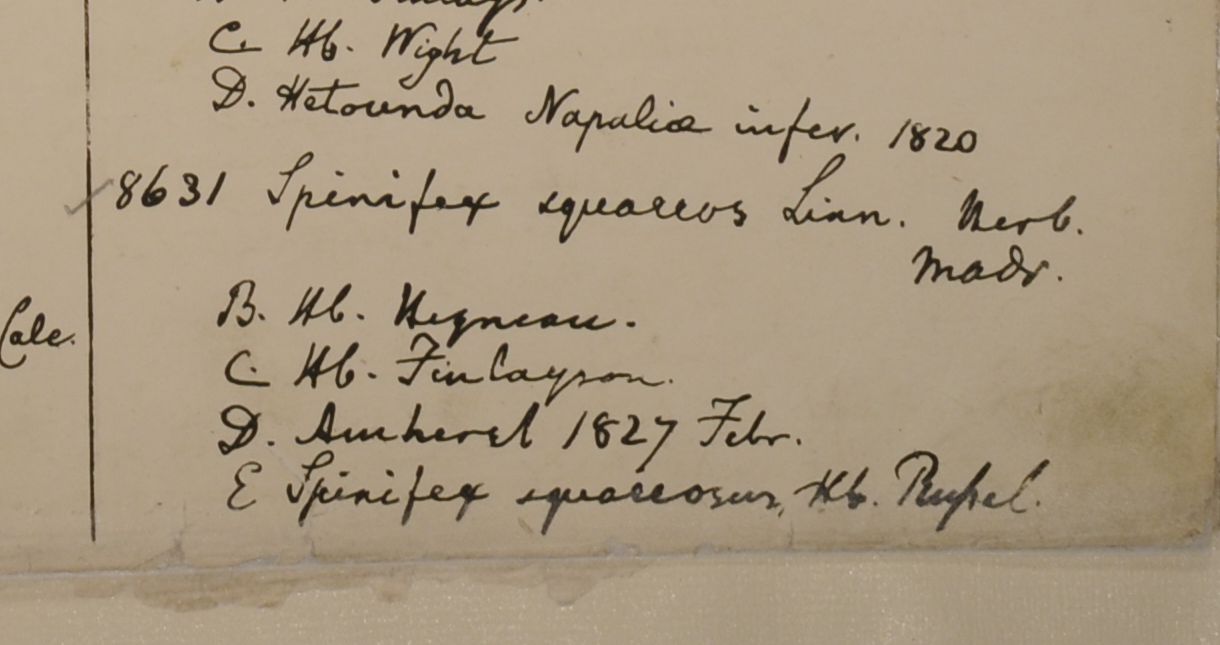 C Hb. Wight
D. Hetounda Napaliæ infer. 1820
8631 Spinifex squarros Linn. Herb.
Madr.
B. Hb. Heyneau.
Calc.
C. Hb. Finlayson.
D. Amherst 1827 Febr.
E Spinifex squarrosus, Hb. Russel.